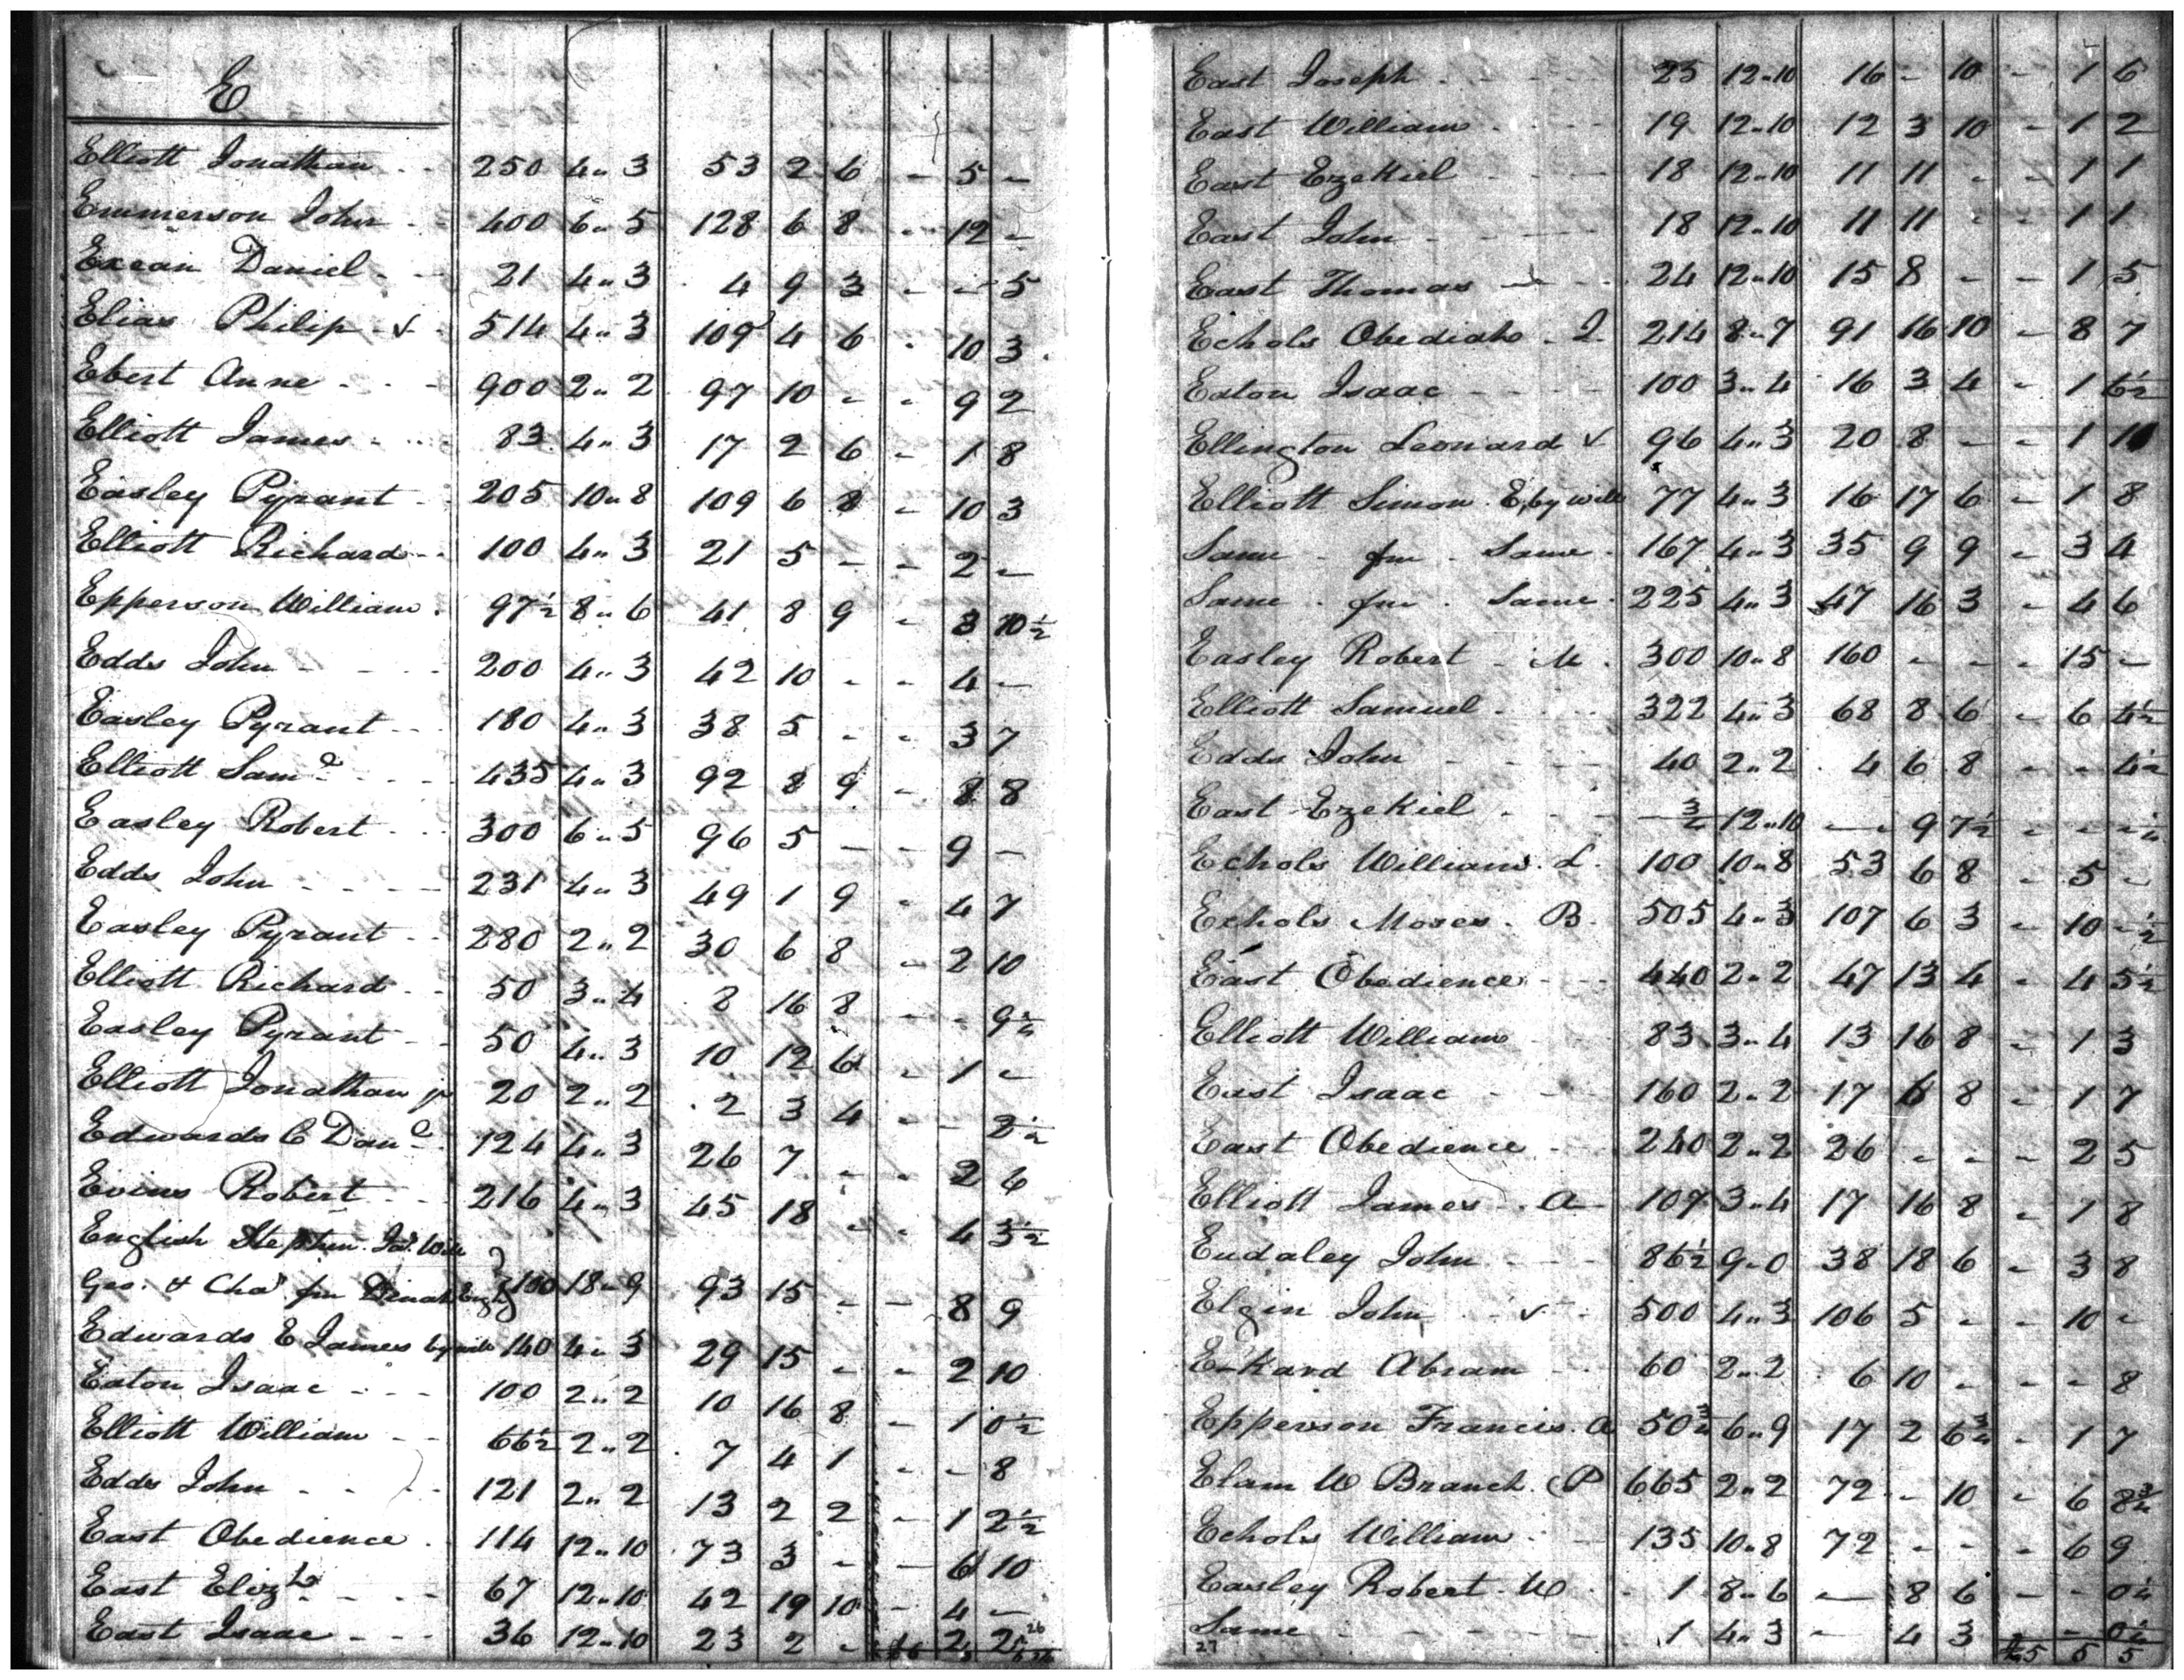 E
Elliott Jonathan 250 4 " 3 53 2 6 - 5 -
Emmerson John 400 6 " 5 128 6 8 - 12 -
Daniel 21 4 " 3 4 9 3 - - 5
Elias Philip 514 4 " 3 109 4 6 - 10 3
Ebert Anne 900 2 " 2 97 10 - - 9 2
Elliott James 83 4 " 3 17 2 6 - 1 8
Easley Pyrant 205 10 " 8 109 6 8 - 10 3
Elliott Richard 100 4 " 3 21 5 - - 2 -
Epperson William 97½ 8 " 6 41 8 9 - 3 10½
Edds John 200 4 " 3 42 10 - - 4 -
Easley Pyrant 180 4 " 3 38 5 - - 3 7
Elliott Saml 435 4 " 3 92 8 9 - 8 8
Easley Robert 300 6 " 5 96 5 - - 9 -
Edds John 231 4 " 3 49 1 9 - 4 7
Easley Pyrant 280 2 " 2 30 6 8 - 2 10
Elliott Richard 50 3 " 4 8 16 8 - - 9¾
Easley Pyrant 50 4 " 3 10 12 6 - 1 -
Elliott Jonathan jr 20 2 " 2 2 3 4 - - 2½
Edwards C Danl 124 4 " 3 26 7 - - 2 6
Evins Robert 216 4 " 3 45 18 - - 4 3½
English Stephen
Geo. & Chas fm Dinah 100 18 " 9 93 15 - - 8 9
Edwards E James by will 140 4 " 3 29 15 - - 2 10
Eaton Isaac 100 2 " 2 10 16 8 - 1 0½
Elliott William 66½ 2 " 2 7 4 1 - - 8
Edds John 121 2 " 2 13 2 2 - 1 2½
East Obedience 114 12 " 10 73 3 - - 6 10
East Elizth 67 12 " 10 42 19 10 - 4 -
East Isaac 36 12 " 10 23 2 - 2 2
East Joseph 25 12 " 10 16 - 10 - 1 6
East William 19 12 " 10 12 3 10 - 1 2
East Ezekiel 18 12 " 10 11 11 - - 1 1
East John 18 12 " 10 11 11 - - 1 1
East Thomas 24 12 " 10 15 8 - - 1 5
Echols Obediah 214 8 " 7 91 16 10 - 8 7
Eaton Isaac 100 3 " 4 16 3 4 - 1 6½
Ellington Leonard 96 4 " 3 20 8 - - 1 10
Elliott Simon E, by will 77 4 " 3 16 17 6 - 1 8
Same fm Same 167 4 " 3 35 9 9 - 3 4
Same fm Same 225 4 " 3 47 16 3 - 4 6
Easley Robert M 300 10 " 8 160 - - - 15 -
Elliott Samuel 322 4 " 3 68 8 6 - 6 4½
Edds John 40 2 " 2 4 6 8 - - 4½
East Ezekiel ¾ 12 " 10 - 9 7½ - - ¼
Echols William L 100 10 " 8 53 6 8 - 5 -
Echols Moses B 505 4 " 3 107 6 3 - 10 - ½
East Obedience 440 2 " 2 47 13 4 - 4 5½
Elliott William 83 3 " 4 13 16 8 - 1 3
East Isaac 160 2 " 2 17 6 8 - 1 7
East Obedience 240 2 " 2 26 - - - 2 5
Elliott James A 107 3 " 4 17 16 8 - 1 8
Eudaley John 86½ 9 " 0 38 18 6 - 3 8
Elgin John 500 4 " 3 106 5 - - 10 -
E-kard Abram 60 2 " 2 6 10 - - - 8
Epperson Francis A 50¾ 6 " 9 17 2 6¾ - 1 7
Elam W Branch (P 665 2 " 2 72 - 10 - 6 8¾
Echols William 135 10 " 8 72 - - - 6 9
Easley Robert W 1 8 " 6 - 8 6 - - 0½
Same 1 4 " 3 - 4 3 - 0¼
27 5 5 5